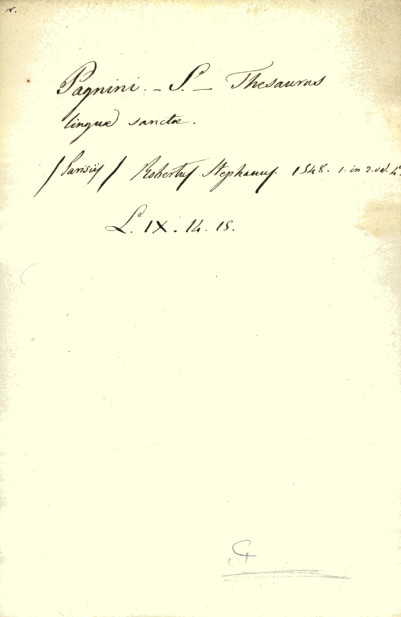 Pagnini. - S. - Thesaurus
linguæ sanctæ.
/Parisiis/ Robertus Stephanus. 1548. 1. in 2. vol. 4.°
L. IX. 14. 15.